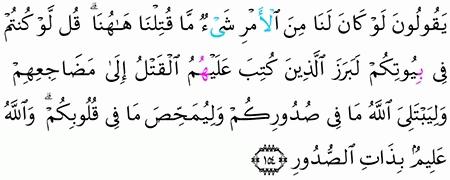 يَقُولُونَ لَوْ كَانَ لَنَا مِنَ ٱلْأَمْرِ شَىْءٌ مَّا قُتِلْنَا هَـٰهُنَا ۗ قُل لَّوْ كُنتُمْ
فِى بِيُوتِكُمْ لَبَرَزَ ٱلَّذِينَ كُتِبَ عَلَيْهِمُ ٱلْقَتْلُ إِلَىٰ مَضَاجِعِهِمْ
وَلِيَبْتَلِىَ ٱللَّهُ مَا فِى صُدُورِكُمْ وَلِيُمَحِّصَ مَا فِى قُلُوبِكُمْ ۗ وَٱللَّهُ
عَلِيمٌۢ بِذَاتِ ٱلصُّدُورِ ١٥٤